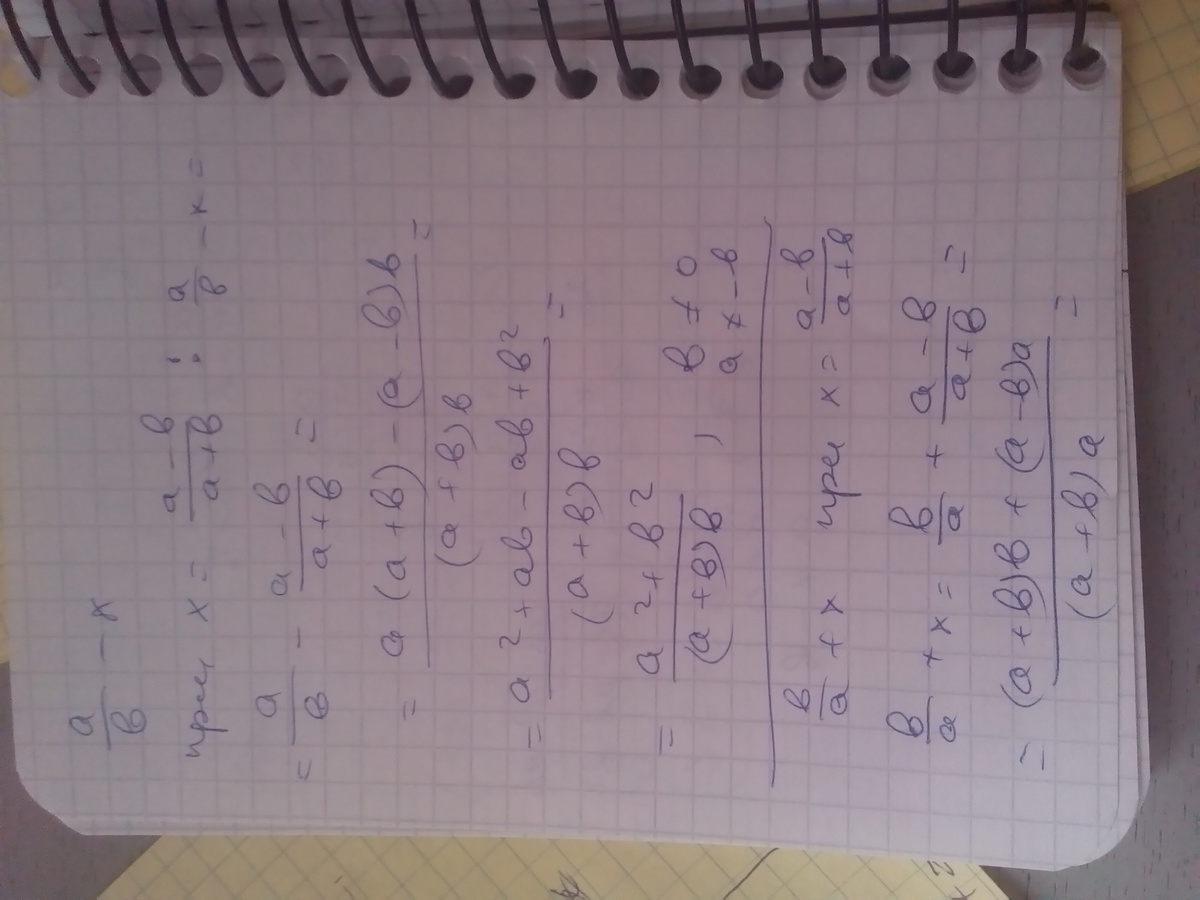 a/b − x
при x = (a−b)/(a+b) : a/b − x =
= a/b − (a−b)/(a+b) =
= (a(a+b) − (a−b)b)/((a+b)b) =
= (a² + ab − ab + b²)/((a+b)b) =
= (a² + b²)/((a+b)b) , b ≠ 0
a ≠ −b
b/a + x при x = (a−b)/(a+b)
b/a + x = b/a + (a−b)/(a+b) =
= ((a+b)b + (a−b)a)/((a+b)a) =